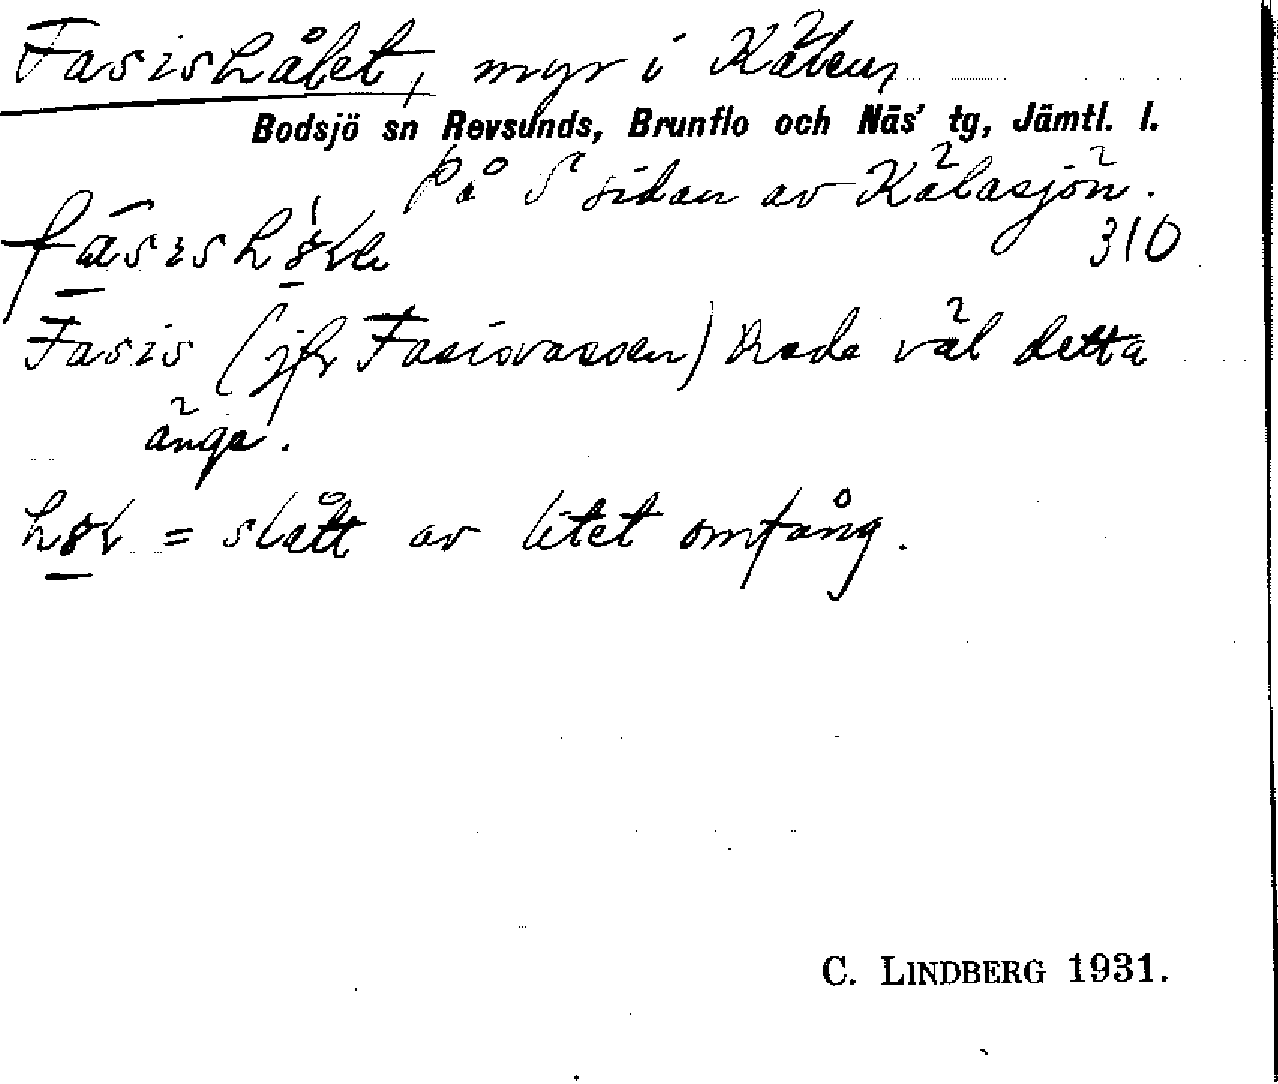 Fasishålet, myr i Kälen,
Bodsjö sn Revsunds, Brunflo och Näs' tg, Jämtl. l.
på S sidan av Kälasjön.
310
Fasis (jfr Fasisvassen) hade väl detta
änge.
= slått av litet omfång.
C. LINDBERG 1931.